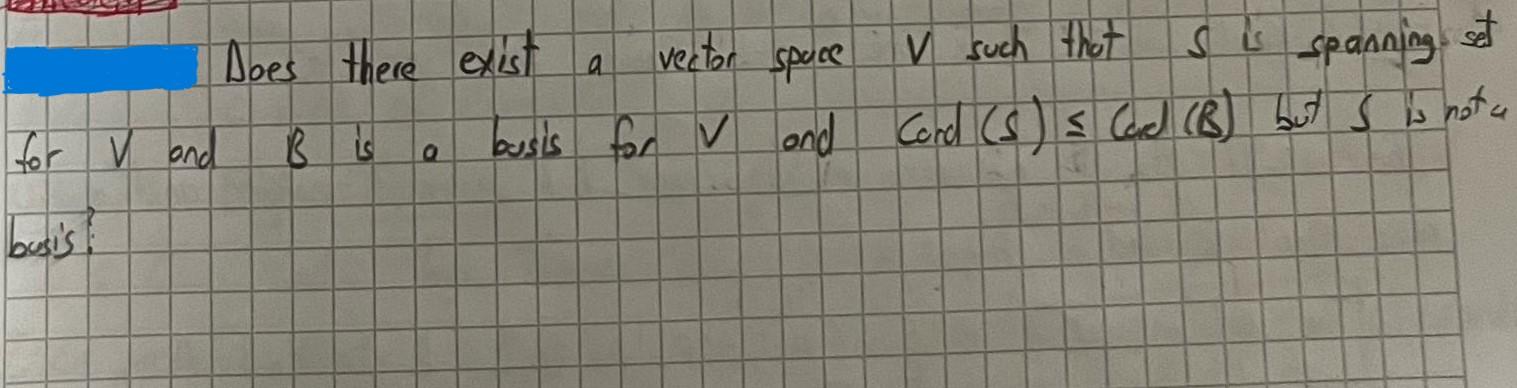 Does there exist a vector space V such that S is spanning set
for V and B is a basis for V and Card (S) ≤ Card (B) but S is not a
basis?